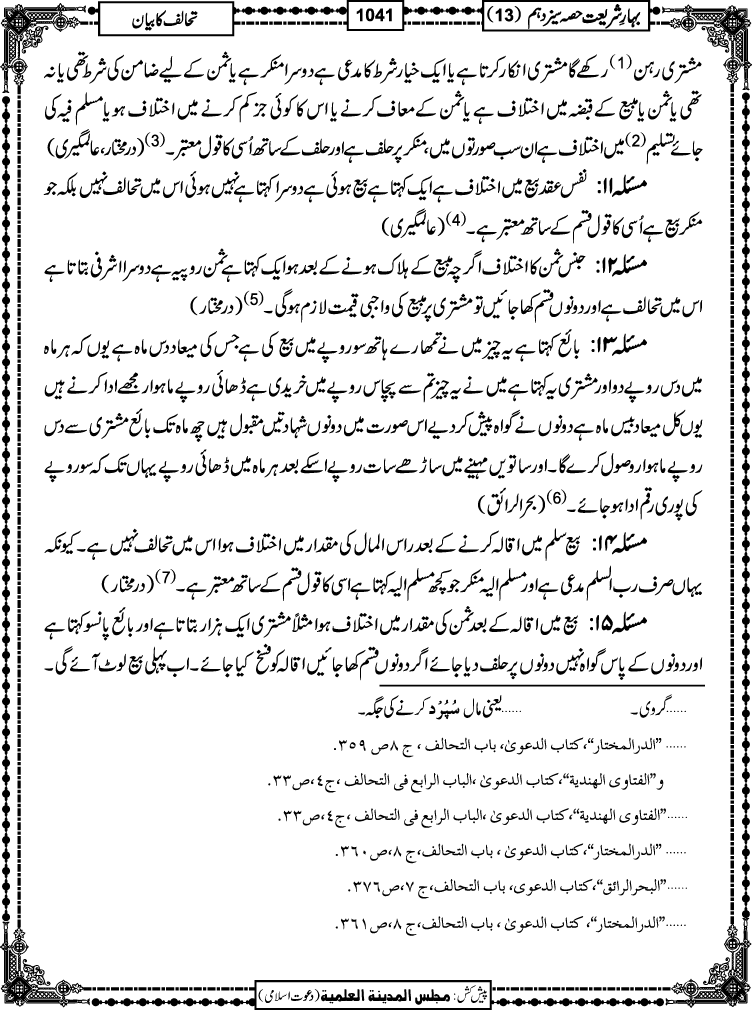 بہارِ شریعت حصہ سیزدہم (13)
1041
تحالف کا بیان
مشتری رہن (1) رکھے گا مشتری انکار کرتا ہے یا ایک خیار شرط کا مدعی ہے دوسرا منکر ہے یا ثمن کے لیے ضامن کی شرط تھی یا نہ
تھی یا ثمن یا مبیع کے قبضہ میں اختلاف ہے یا ثمن کے معاف کرنے یا اس کا کوئی جز کم کرنے میں اختلاف ہو یا مسلم فیہ کی
جائے تسلیم (2) میں اختلاف ہے ان سب صورتوں میں منکر پر حلف ہے اور حلف کے ساتھ اُسی کا قول معتبر۔ (3) (درمختار، عالمگیری)
مسئلہ ۱۱: نفس عقد بیع میں اختلاف ہے ایک کہتا ہے بیع ہوئی ہے دوسرا کہتا ہے نہیں ہوئی اس میں تحالف نہیں بلکہ جو
منکر بیع ہے اُسی کا قول قسم کے ساتھ معتبر ہے۔ (4) (عالمگیری)
مسئلہ ۱۲: جنس ثمن کا اختلاف اگرچہ مبیع کے ہلاک ہونے کے بعد ہو ایک کہتا ہے ثمن روپیہ ہے دوسرا اشرفی بتاتا ہے
اس میں تحالف ہے اور دونوں قسم کھا جائیں تو مشتری پر مبیع کی واجبی قیمت لازم ہوگی۔ (5) (درمختار)
مسئلہ ۱۳: بائع کہتا ہے یہ چیز میں نے تمھارے ہاتھ سو روپے میں بیع کی ہے جس کی میعاد دس ماہ ہے یوں کہ ہر ماہ
میں دس روپے دو اور مشتری یہ کہتا ہے میں نے یہ چیز تم سے پچاس روپے میں خریدی ہے ڈھائی روپے ماہوار مجھے ادا کرنے ہیں
یوں کل میعاد بیس ماہ ہے دونوں نے گواہ پیش کر دیے اس صورت میں دونوں شہادتیں مقبول ہیں چھ ماہ تک بائع مشتری سے دس
روپے ماہوار وصول کرے گا۔ اور ساتویں مہینے میں ساڑھے سات روپے اسکے بعد ہر ماہ میں ڈھائی روپے یہاں تک کہ سو روپے
کی پوری رقم ادا ہو جائے۔ (6) (بحرالرائق)
مسئلہ ۱۴: بیع سلم میں اقالہ کرنے کے بعد راس المال کی مقدار میں اختلاف ہوا اس میں تحالف نہیں ہے۔ کیونکہ
یہاں صرف رب السلم مدعی ہے اور مسلم الیہ منکر جو کچھ مسلم الیہ کہتا ہے اسی کا قول قسم کے ساتھ معتبر ہے۔ (7) (درمختار)
مسئلہ ۱۵: بیع میں اقالہ کے بعد ثمن کی مقدار میں اختلاف ہوا مثلاً مشتری ایک ہزار بتاتا ہے اور بائع پانسو کہتا ہے
اور دونوں کے پاس گواہ نہیں دونوں پر حلف دیا جائے اگر دونوں قسم کھا جائیں اقالہ کو فسخ کیا جائے۔ اب پہلی بیع لوٹ آئے گی۔
......گروی۔ ......یعنی مال سُپُرْد کرنے کی جگہ۔
...... ”الدرالمختار“، کتاب الدعویٰ، باب التحالف ، ج ٨ ص ٣٥٩.
و”الفتاوی الھندیة“، کتاب الدعویٰ ،الباب الرابع فی التحالف ،ج٤،ص٣٣.
......”الفتاوی الھندیة“، کتاب الدعویٰ ،الباب الرابع فی التحالف ،ج٤،ص٣٣.
...... ”الدرالمختار“، کتاب الدعویٰ ، باب التحالف،ج ٨،ص٣٦٠.
......”البحرالرائق“، کتاب الدعوی، باب التحالف،ج ٧،ص٣٧٦.
......”الدرالمختار“، کتاب الدعویٰ ، باب التحالف،ج ٨،ص٣٦١.
پیش کش: مجلس المدینة العلمیة (دعوت اسلامی)